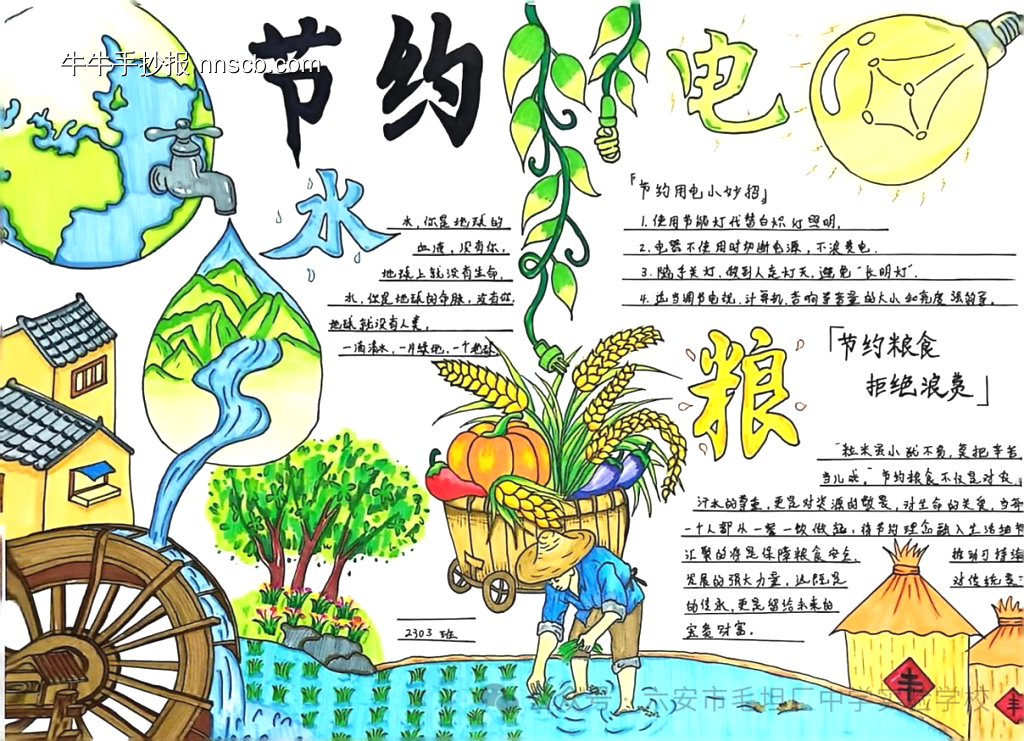 牛牛手抄报 nnscb.com
节约
水
电
粮
水,你是地球的
血液,没有你,
地球上就没有生命,
水,你是地球的命脉,没有你,
地球就没有人类,
一滴清水,一片绿地,一个地球
「节约用电小妙招」
1.使用节能灯代替白炽灯照明.
2.电器不使用时切断电源,不浪费电.
3.随手关灯,做到人走灯灭,避免“长明灯”.
4.适当调节电视.计算机,音响等音量的大小和亮度
「节约粮食
拒绝浪费」
“粒米虽小犹不易,莫把辛苦
当儿戏”节约粮食不仅是对农
汗水的尊重,更是对资源的敬畏,对生命的关爱,当每
一个人都从一餐一饭做起,将节约理念融入生活细节
汇聚的将是保障粮食安全、
推动可持续
发展的强大力量,这既是
对传统美
的传承,更是留给未来的
宝贵财富.
2303班
丰
丰
公众号·六安市毛坦厂中学实验学校